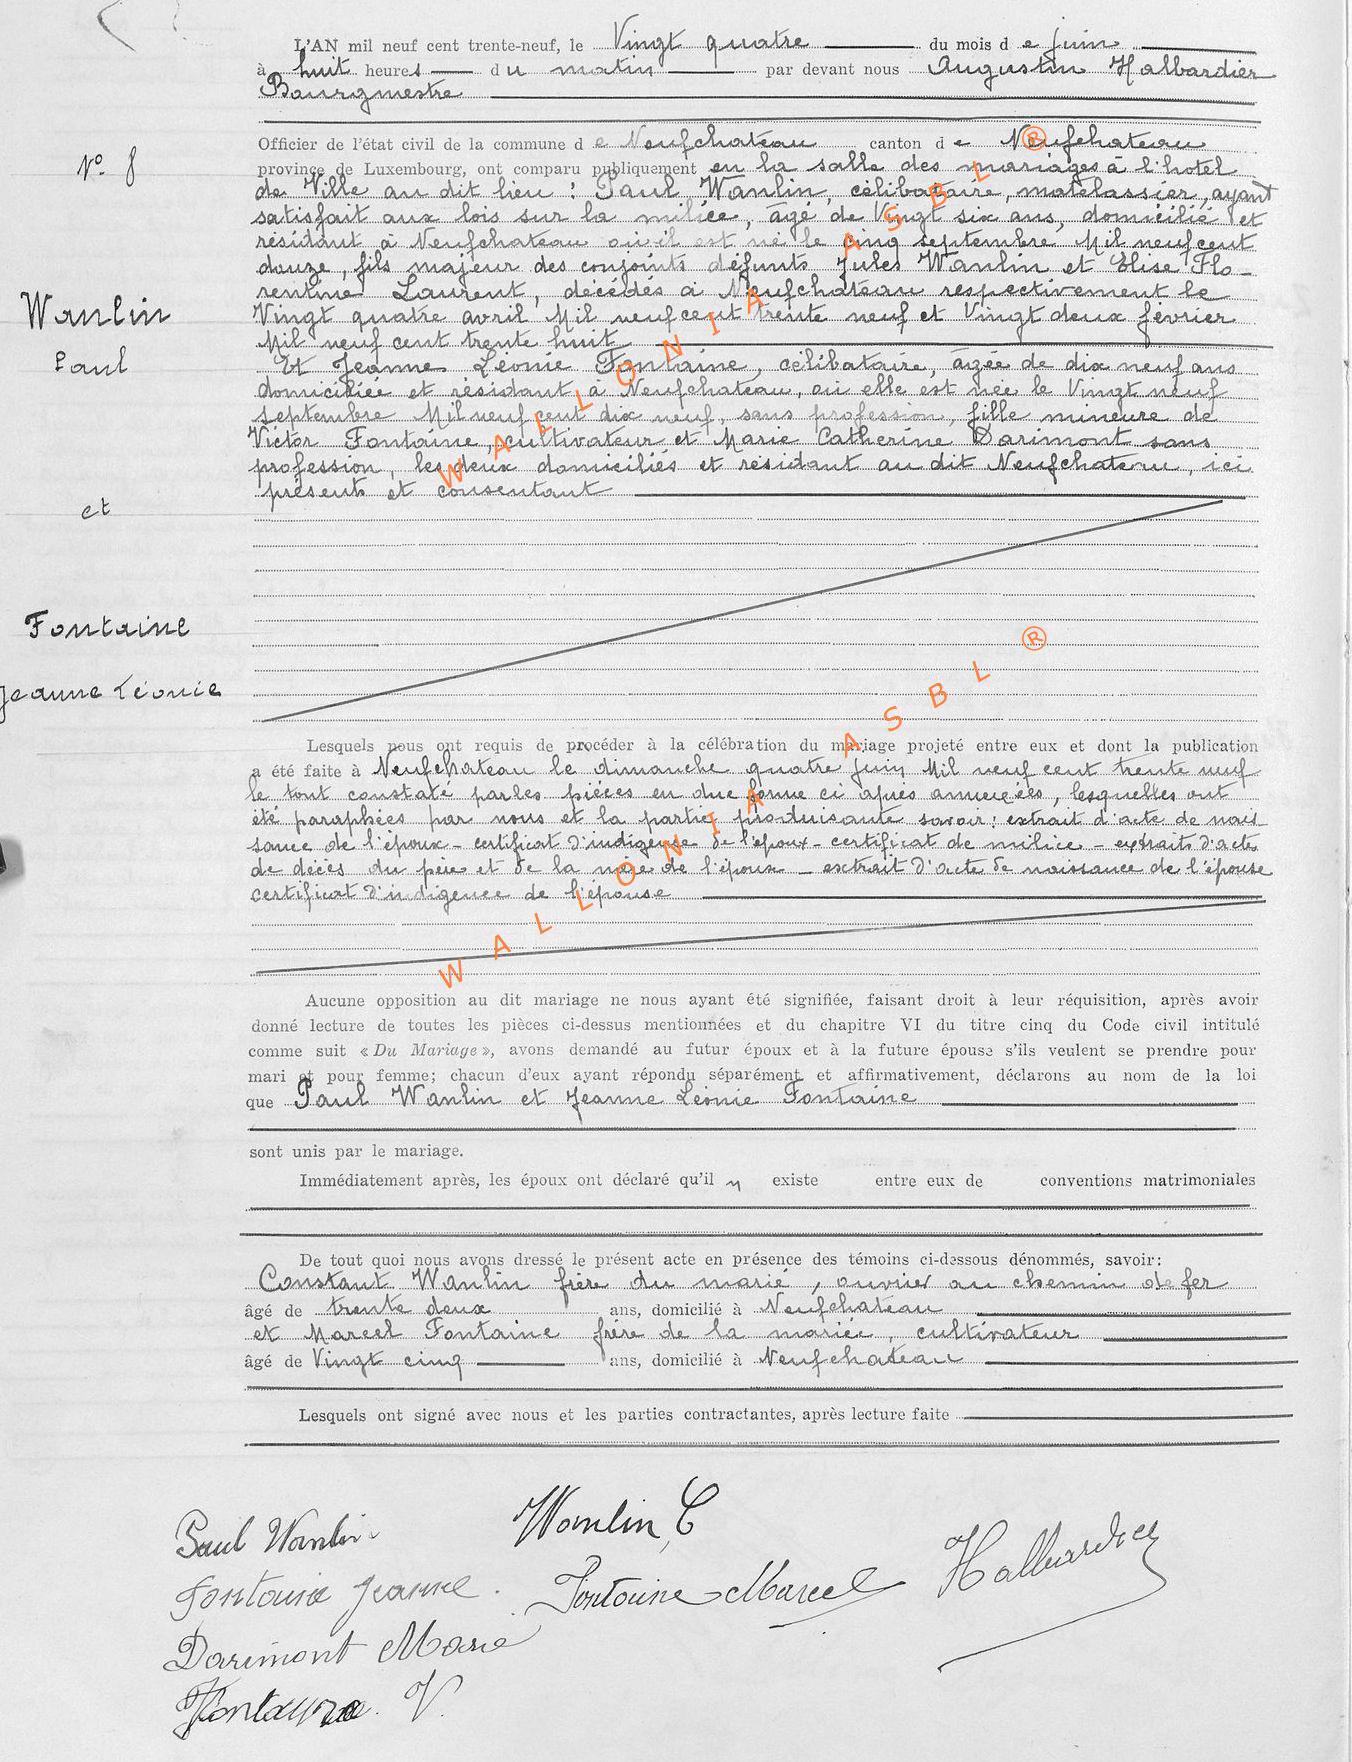 L'AN mil neuf cent trente-neuf, le Vingt quatre du mois de juin
à huit heures du matin par devant nous Augustin Halbardier
Bourgmestre
Officier de l'état civil de la commune de Neufchateau canton de Neufchateau
province de Luxembourg, ont comparu publiquement en la salle des mariages à l'hotel
N° 8
de Ville au dit lieu : Paul Wanlin, célibataire, matelassier, ayant
satisfait aux lois sur la milice, âgé de Vingt six ans, domicilié et
résidant à Neufchateau où il est né le cinq septembre Mil neuf cent
douze, fils majeur des conjoints défunts Jules Wanlin et Elise Flo-
rentine Laurent, décédés à Neufchateau respectivement le
Vingt quatre avril Mil neuf cent trente neuf et Vingt deux février
Mil neuf cent trente huit
Wanlin
Paul
Et Jeanne Léonie Fontaine, célibataire, âgée de dix neuf ans
domiciliée et résidant à Neufchateau, où elle est née le Vingt neuf
septembre Mil neuf cent dix neuf, sans profession, fille mineure de
Victor Fontaine, cultivateur et Marie Catherine Darimont sans
profession, les deux domiciliés et résidant au dit Neufchateau, ici
présents et consentant
et
Fontaine
Jeanne Léonie
Lesquels nous ont requis de procéder à la célébration du mariage projeté entre eux et dont la publication
a été faite à Neufchateau le dimanche quatre juin Mil neuf cent trente neuf
le tout constaté par les pièces en due forme ci après annexées, lesquelles ont
été paraphées par nous et la partie produisante savoir : extrait d'acte de nais-
sance de l'époux - certificat d'indigence de l'époux - certificat de milice - extraits d'acte
de décès du père et de la mère de l'époux - extrait d'acte de naissance de l'épouse
certificat d'indigence de l'épouse
Aucune opposition au dit mariage ne nous ayant été signifiée, faisant droit à leur réquisition, après avoir
donné lecture de toutes les pièces ci-dessus mentionnées et du chapitre VI du titre cinq du Code civil intitulé
comme suit « Du Mariage », avons demandé au futur époux et à la future épouse s'ils veulent se prendre pour
mari et pour femme; chacun d'eux ayant répondu séparément et affirmativement, déclarons au nom de la loi
que Paul Wanlin et Jeanne Léonie Fontaine
sont unis par le mariage.
Immédiatement après, les époux ont déclaré qu'il n existe entre eux de conventions matrimoniales
De tout quoi nous avons dressé le présent acte en présence des témoins ci-dessous dénommés, savoir:
Constant Wanlin frère du marié, ouvrier au chemin de fer
âgé de trente deux ans, domicilié à Neufchateau
et Marcel Fontaine frère de la mariée, cultivateur
âgé de Vingt cinq ans, domicilié à Neufchateau
Lesquels ont signé avec nous et les parties contractantes, après lecture faite
Paul Wanlin
Wanlin, C
Halbardier
Fontaine Jeanne.
Fontaine Marcel
Darimont Marie
Fontaine. V.
WALLONIA ASBL ®
WALLONIA ASBL ®